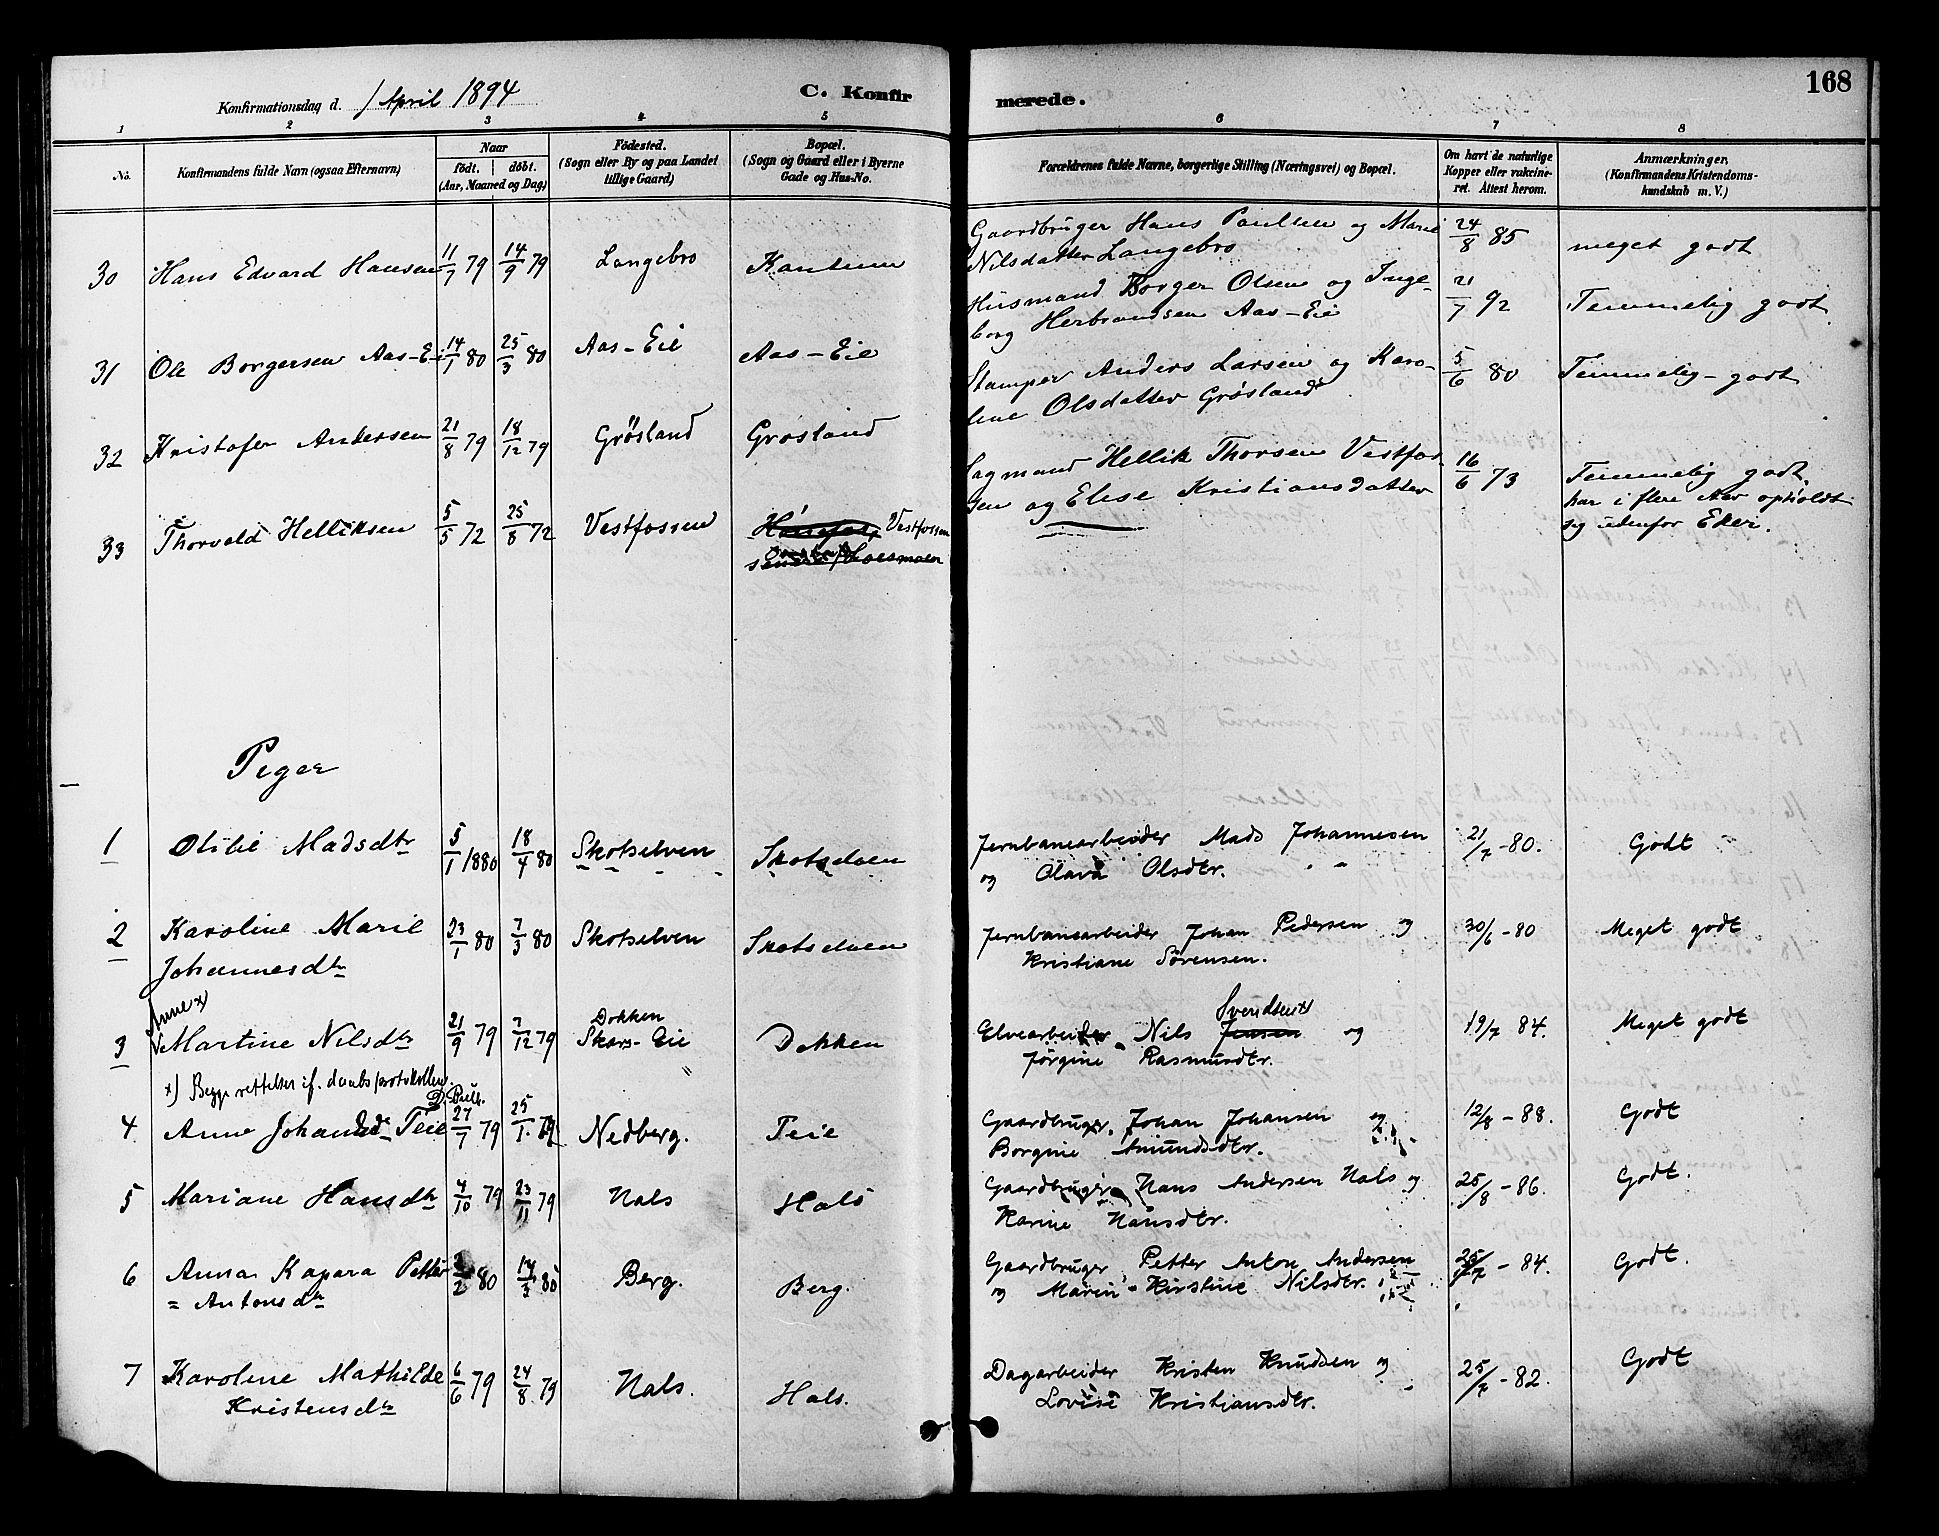 168
Konfirmationsdag d. 1 April 1894
C. Konfirmerede.
1 2 3 4 5 6 7 8
No.
Konfirmandens fulde Navn (ogsaa Efternavn)
Naar
født. døbt.
(Aar, Maaned og Dag)
Fødested.
(Sogn eller By og paa Landet
tillige Gaard)
Bopæl.
(Sogn og Gaard eller i Byerne
Gade og Hus-No.
Forældrenes fulde Navne, borgerlige Stilling (Næringsvei) og Bopæl.
Om havt de naturlige
Kopper eller vakcine-
ret. Attest herom.
Anmærkninger,
(Konfirmandens Kristendoms-
kundskab m. V.)
30 Hans Edvard Hansen 11/7 79 14/9 79 Langebro
Gaardbruger Hans Paulsen og Marie
Nilsdatter Langebro
24/8 85 meget godt
31 Ole Borgersen Aas-Eie 14/1 80 25/3 80 Aas-Eie Aas-Eie
Husmand Borger Olsen og Inge-
borg Herbrandsen Aas-Eie
21/7 92 Temmelig godt
32 Kristofer Andersen 21/8 79 18/12 79 Grøsland Grøsland
Stamper Anders Larsen og Karo-
line Olsdatter Grøsland
5/6 80 Temmelig-godt
33 Thorvald Helliksen 5/5 72 25/8 72 Vestfossen Hønefos, Vestfossen
Sagmand Hellik Thorsen Vestfos-
sen og Elise Kristiansdatter
16/6 73 Temmelig godt,
har i flere Aar opholdt
sig udenfor Eker.
Piger
1 Otilie Madsdtr 5/1 1880 18/4 80 Skotselven Skotselven
Jernbanearbeider Mads Johannesen
og Olava Olsdtr. " "
21/7-80. Godt
2 Karoline Marie
Johannesdtr 23/1 80 7/3 80 Skotselven Skotselven
Jernbanearbeider Johan Pedersen og
Kristiane Sørensen.
30/6-80 Meget godt
Anne x)
3 Martine Nilsdtr 21/9 79 7/12 79 Dokken
Skars-Eie Dokken
Elvearbeider Nils Jensen Svendsen x) og
Jørgine Rasmusdtr.
19/7 84. Meget godt
x) Begge rettelser if. daabsprotokollen.
4. Anne Johansdtr Teie 27/7 79 25/1 79 Nedberg. Teie
Gaardbruger, Johan Johansen og
Borgine Amundsdtr.
12/8-88. Godt
5 Mariane Hansdtr 4/10 79 23/11 79 Hals Hals
Gaardbruger Hans Andersen Hals og
Karine Hansdtr.
25/8-86. Godt.
6 Anna Kapara Petter
= Antonsdtr 2/2 80 14/3 80 Berg. Berg.
Gaardbruger Petter Anton Andersen
og Marin Kirstine Nilsdtr.
25/7-84. Godt.
7 Karoline Mathilde
Kristensdtr 6/6 79 24/8 79 Hals. Hals.
Dagarbeider Kristen Knudsen og
Lovise Kristiansdtr.
25/7-82. Godt